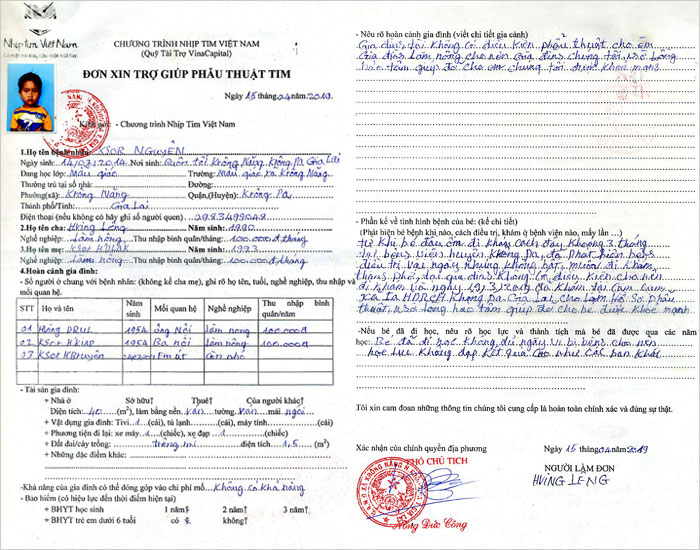 Nhịp Tim Việt Nam
CHƯƠNG TRÌNH NHỊP TIM VIỆT NAM
(Quỹ Tài Trợ VinaCapital)
ĐƠN XIN TRỢ GIÚP PHẪU THUẬT TIM
Ngày 15 tháng 04 năm 2019
Kính gửi: - Chương trình Nhịp Tim Việt Nam
1.Họ tên bệnh nhân: KSOR NGUYÊN
Ngày sinh: 14/07/2014 Nơi sinh: Buôn tối Krông Năng Krông Pa Gia Lai
Đang học lớp: Mẫu giáo Trường: Mẫu giáo xã Krông Năng
Thường trú tại số nhà: Đường:
Phường(xã): Krông Năng Quận,(Huyện): Krông Pa
Thành phố/Tỉnh: Gia Lai
Điện thoại (nếu không có hãy ghi số người quen) : 0983499048
2.Họ tên cha: Hving Leng Năm sinh: 1990
Nghề nghiệp: Làm nông Thu nhập bình quân/tháng: 100.000đ/tháng
3.Họ tên mẹ: KSor H' Năm sinh: 1993
Nghề nghiệp: Làm nông Thu nhập bình quân/tháng: 100.000đ/tháng
4.Hoàn cảnh gia đình:
- Số người ở chung với bệnh nhân: (không kể cha mẹ), ghi rõ họ tên, tuổi, nghề nghiệp, thu nhập và
mối quan hệ.
STT Họ và tên Năm sinh Mối quan hệ Nghề nghiệp Thu nhập bình quân/năm
01 Hving 1954 ông Nội làm nông 100.000đ
02 KSor H' 1954 Bà nội làm nông 100.000đ
03 KSor H' Em út còn nhỏ
- Tài sản gia đình:
+ Nhà ở Sở hữu↑ Thuê↑ Của người khác↑
Diện tích: 40 (m²), làm bằng nền. ván tường. ván mái. ngói
+ Vật dụng gia đình: Tivi 1 (cái), tủ lạnh (cái), máy tính (cái)
+ Phương tiện đi lại: xe máy 1 (chiếc), xe đạp 1 (chiếc)
+ Đất đai/cây trồng: trồng mì diện tích 1,5 (m²)
+ Những đặc điểm khác:
-Khả năng của gia đình có thể đóng góp vào chi phí mổ Không có khả năng
- Bảo hiểm (có hiệu lực đến thời điểm hiện tại)
+ BHYT học sinh 1 năm§ 2 năm↑ 3 năm↑
+ BHYT trẻ em dưới 6 tuổi có không↑
- Nêu rõ hoàn cảnh gia đình (viết chi tiết gia cảnh)
Gia đình tôi không có điều kiện phẫu thuật cho em
Gia đình làm nông cho nên gia đình chúng tôi nhờ lòng
hảo tâm giúp đỡ cho em chúng tôi được khỏe mạnh
- Phần kể về tình hình bệnh của bé: (kể chi tiết)
(Phát hiện bé bệnh khi nào, cách điều trị, khám ở bệnh viện nào, mấy lần ...)
từ khi bé đau ốm đi khám cách đây khoảng 3 tháng
tại bệnh viện huyện Krông Pa đã phát hiện bệnh
điều trị vài ngày nhưng không bớt, muốn đi khám
thành phố, tại gia đình không có điều kiện cho nên
đi khám vào ngày 19/3/2019 đã khám tại
xã Ia HDREH Krông Pa Gia Lai cho làm hồ sơ phẫu
thuật, nhờ lòng hảo tâm giúp đỡ cho bé được khỏe mạnh
-Nếu bé đã đi học, nêu rõ học lực và thành tích mà bé đã được qua các năm
học: Bé đã đi học không đủ ngày vì bị bệnh cho nên
học lực không đạp kết quả cao như các bạn khác
Tôi xin cam đoan những thông tin chúng tôi cung cấp là hoàn toàn chính xác và đúng sự thật.
Ngày 15 tháng 04 năm 2019
Xác nhận của chính quyền địa phương
PHÓ CHỦ TỊCH
NGƯỜI LÀM ĐƠN
HVING LENG
Nông Đức Công